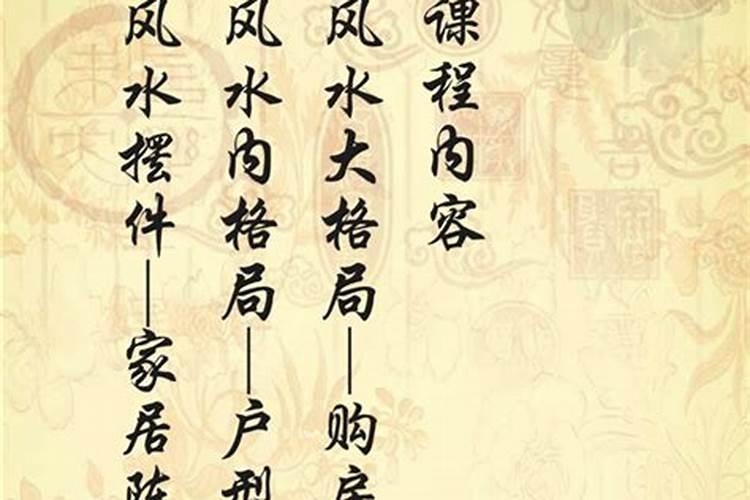 课程内容
风水大格局—购房
风水内格局—户型
风水摆件—家居陈